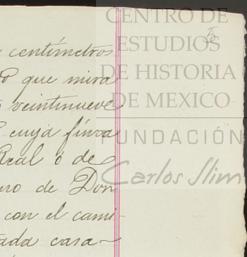 CENTRO DE
ESTUDIOS
DE HISTORIA
DE MEXICO
FUNDACIÓN
Carlos Slim
centímetros
que mira
veintinueve
cuya finca
Real ó de
ero de Don
con el cami-
ada casa-